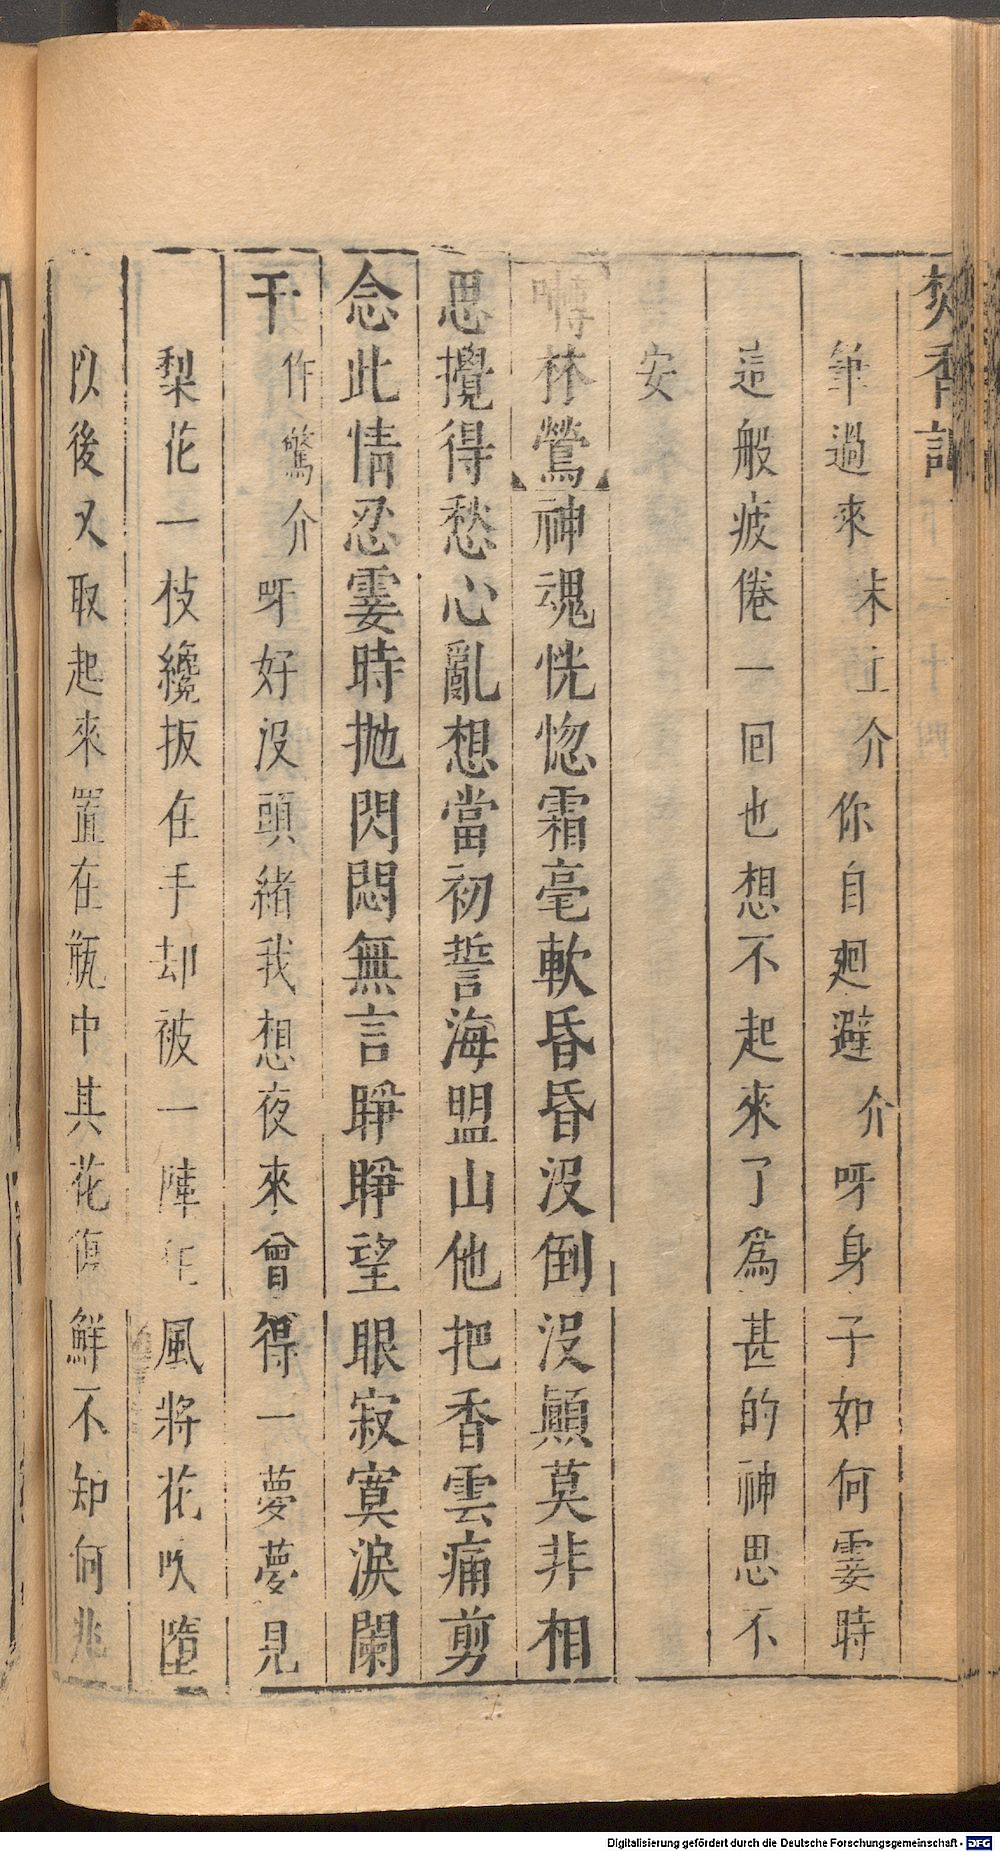 焚香記
筆過來末上介你自廻避介呀身子如何霎時
這般疲倦一回也想不起來了爲甚的神思不
安
囀林鶯神魂恍惚霜毫軟昏昏沒倒沒顚莫非相
思攪得愁心亂想當初誓海盟山他把香雲痛剪
念此情忍霎時抛閃悶無言睜睜望眼寂寞淚闌
干作驚介呀好沒頭緒我想夜來曾得一夢夢見
梨花一枝纔扳在手却被一陣狂風將花吹墮
以後又取起來置在瓶中其花復鮮不知何兆
Digitalisierung gefördert durch die Deutsche Forschungsgemeinschaft - DFG